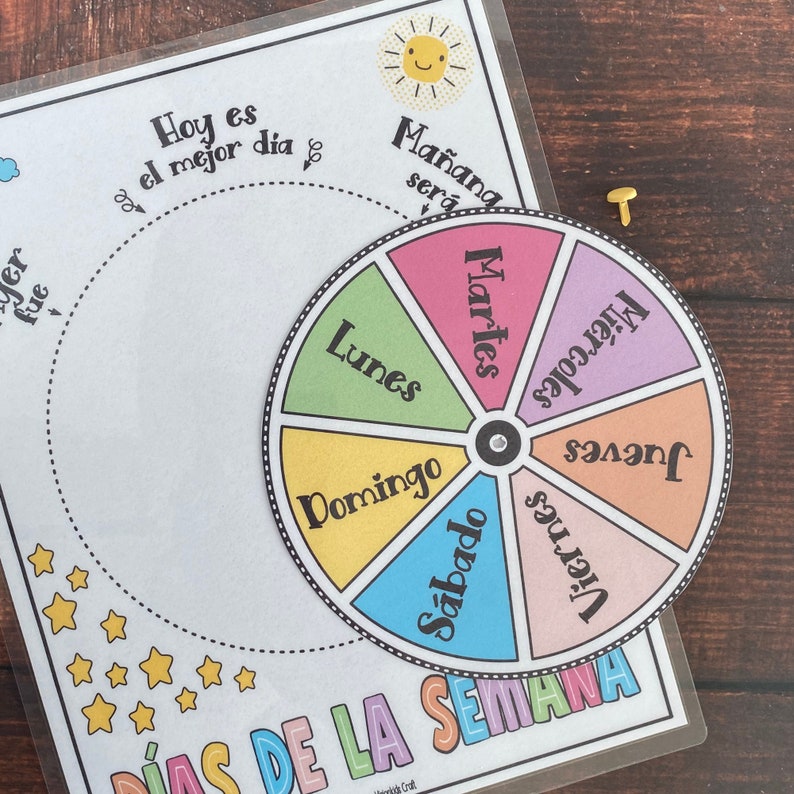 Hoy es
el mejor día
Mañana
será
fue
Martes
Miércoles
Jueves
Viernes
Sábado
Domingo
Lunes
DÍAS DE LA SEMANA
Craft